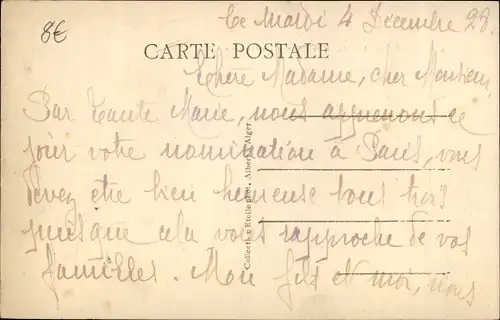 Ce Mardi 4 Décembre 28.
8€
CARTE POSTALE
Chère Madame, cher Monsieur,
Par tante Marie, nous apprenons ce
jour votre nomination à Paris, vous
devez être bien heureuse tous trois
puisque cela vous rapproche de vos
familles. Mon fils et moi, nous
Collection Etoile phot. Albert, Alger